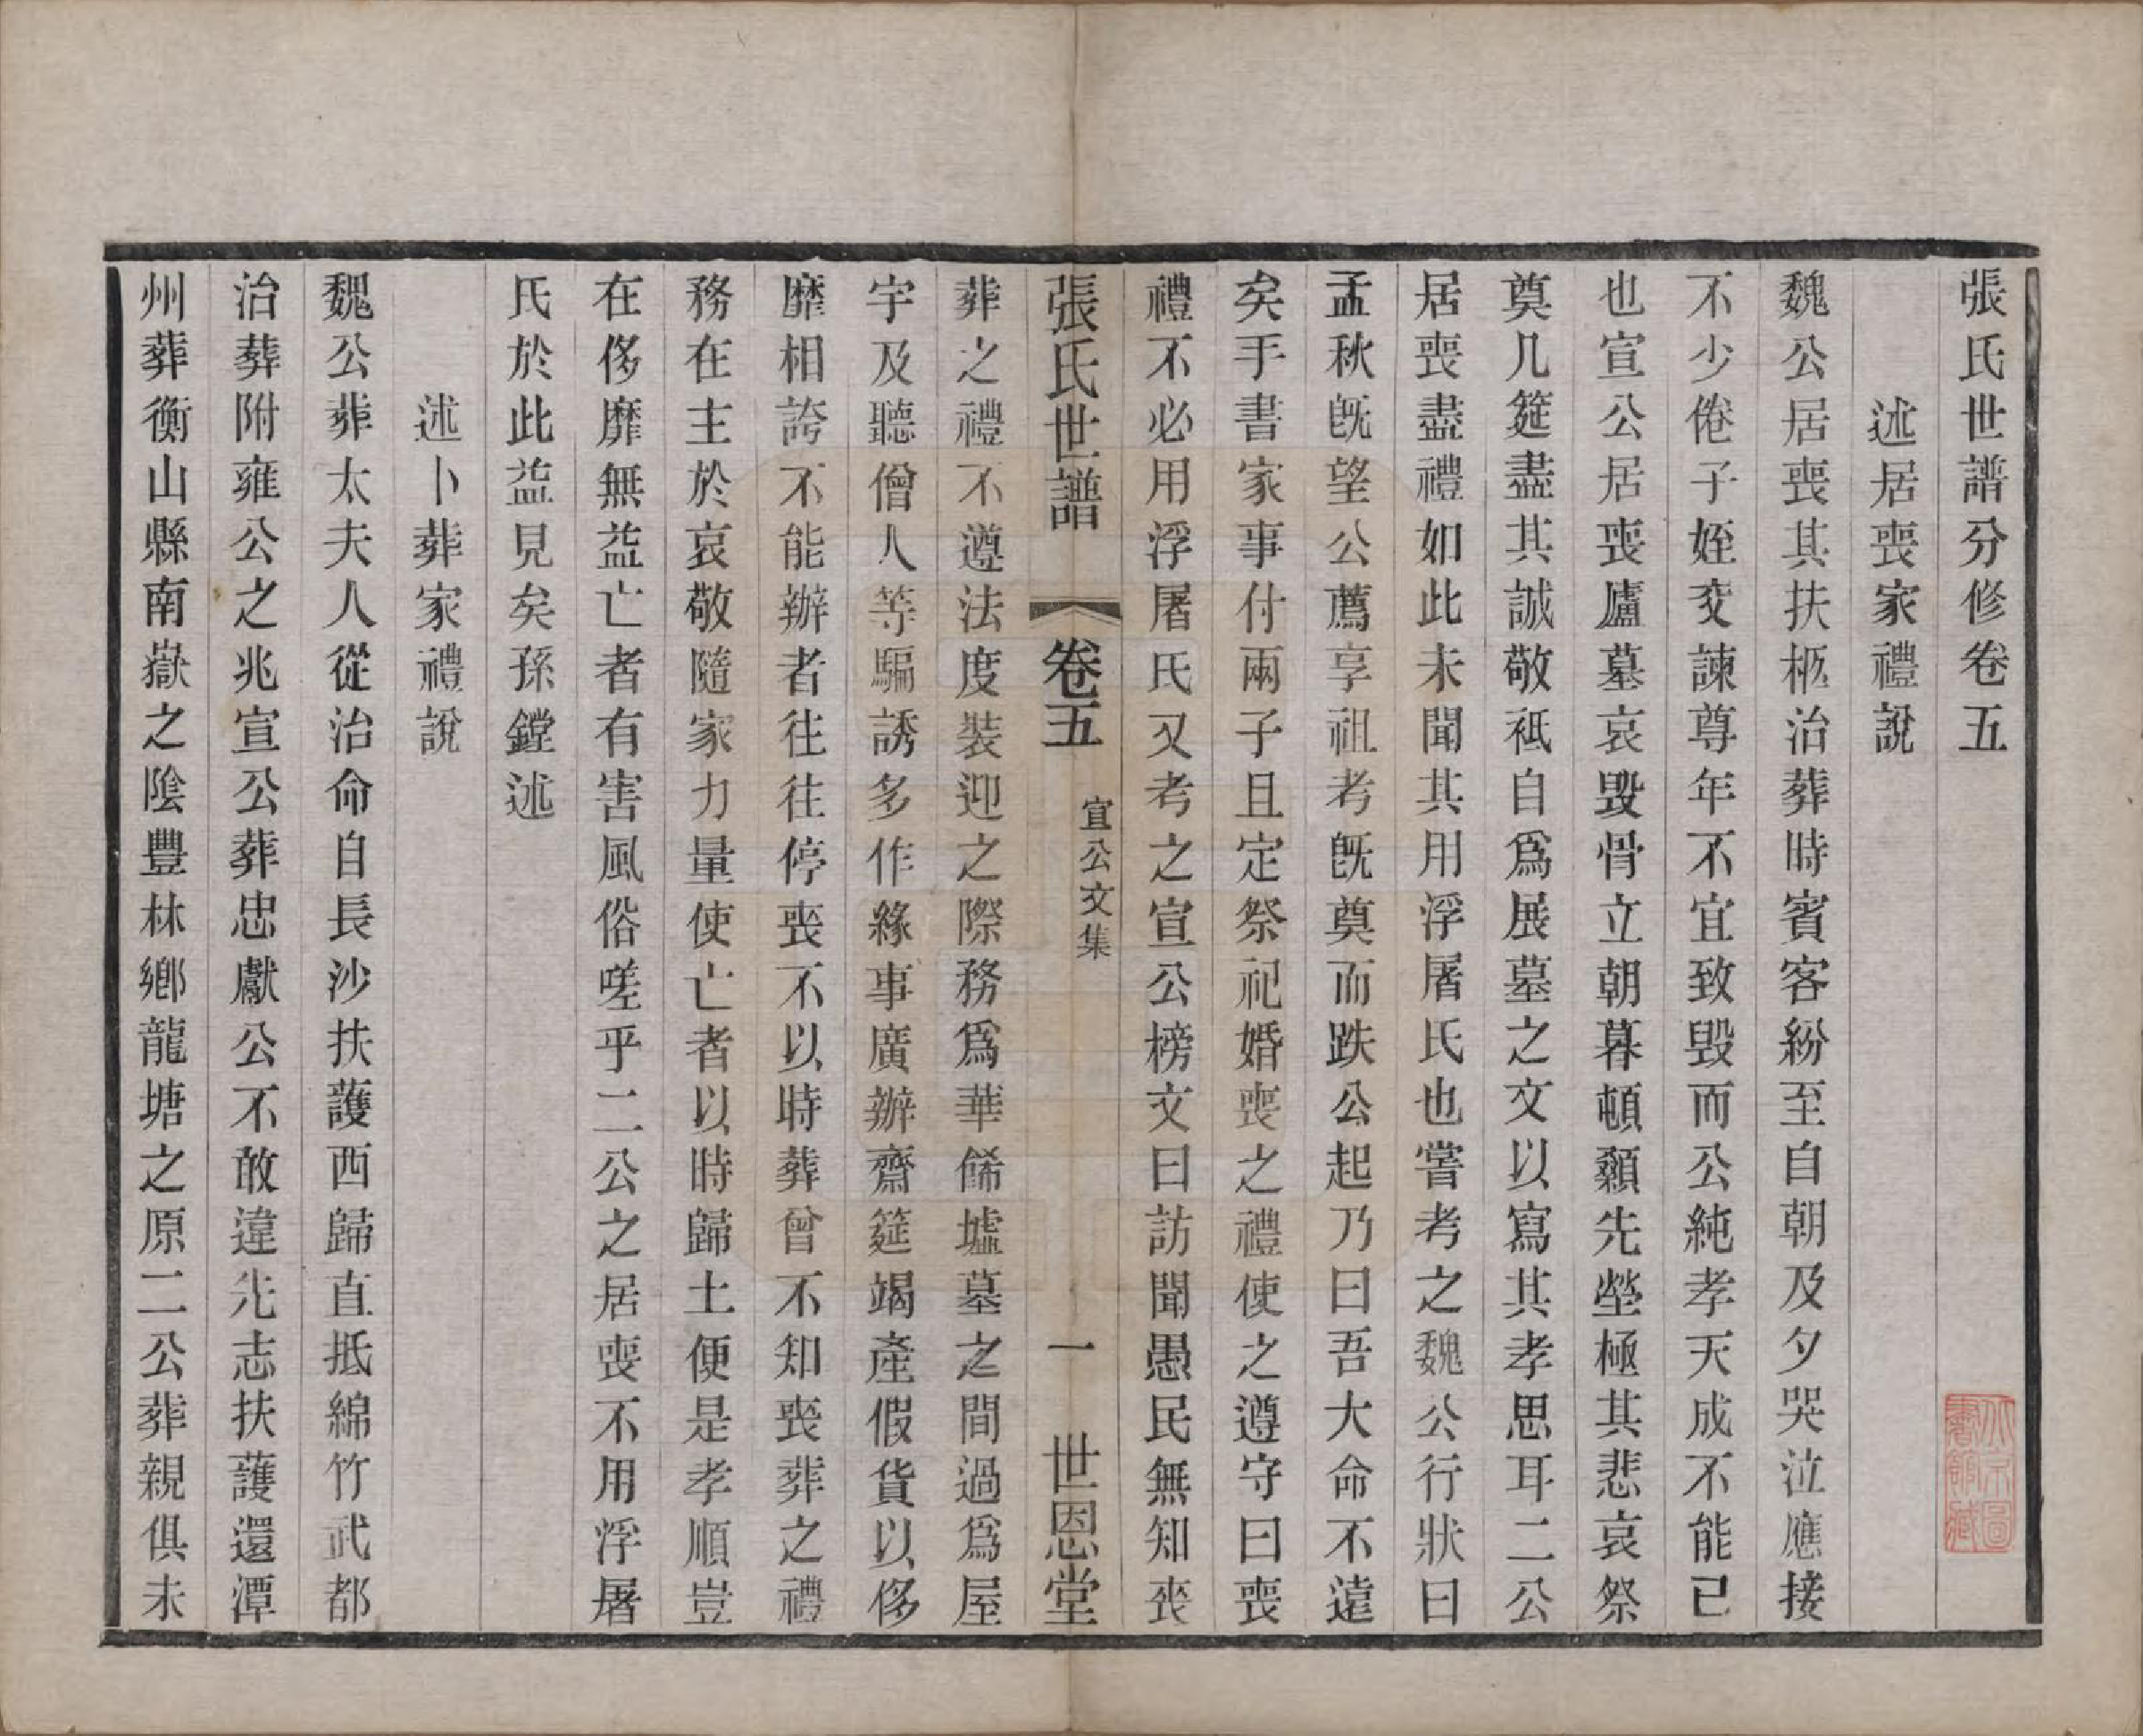 張氏世譜分修卷五
述居喪家禮說
魏公居喪其扶柩治葬時賓客紛至自朝及夕哭泣應接
不少倦子姪交諫尊年不宜致毀而公純孝天成不能已
也宣公居喪廬墓哀毀骨立朝暮頓顙先塋極其悲哀祭
奠几筵盡其誠敬祗自爲展墓之文以寫其孝思耳二公
居喪盡禮如此未聞其用浮屠氏也嘗考之魏公行狀曰
孟秋旣望公薦享祖考旣奠而跌公起乃曰吾大命不遠
矣手書家事付兩子且定祭祀婚喪之禮使之遵守曰喪
禮不必用浮屠氏又考之宣公榜文曰訪聞愚民無知喪
張氏世譜 卷五 宣公文集 一 世恩堂
葬之禮不遵法度裝迎之際務爲華餙墟墓之間過爲屋
宇及聽僧人等騙誘多作緣事廣辦齋筵竭產假貨以侈
靡相誇不能辦者往往停喪不以時葬曾不知喪葬之禮
務在主於哀敬隨家力量使亡者以時歸土便是孝順豈
在侈靡無益亡者有害風俗嗟乎二公之居喪不用浮屠
氏於此益見矣孫鏜述
述卜葬家禮說
魏公葬太夫人從治命自長沙扶護西歸直抵綿竹武都
治葬附雍公之兆宣公葬忠獻公不敢違先志扶護還潭
州葬衡山縣南嶽之陰豐林鄉龍塘之原二公葬親俱未